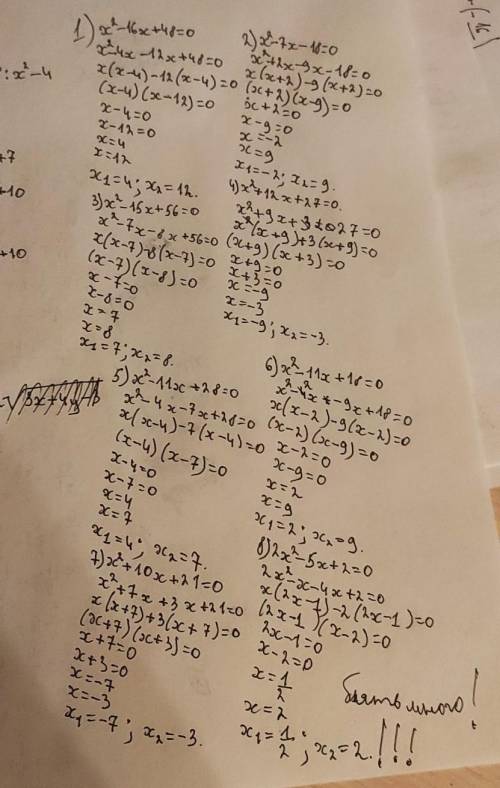 : x²-4
+7
+10
+10
1) x²-16x+48=0
x²-4x-12x+48=0
x(x-4)-12(x-4)=0
(x-4)(x-12)=0
x-4=0
x-12=0
x=4
x=12
x₁=4; x₂=12.
2) x²-7x-18=0
x²+2x-9x-18=0
x(x+2)-9(x+2)=0
(x+2)(x-9)=0
x+2=0
x-9=0
x=-2
x=9
x₁=-2; x₂=9.
3) x²-15x+56=0
x²-7x-8x+56=0
x(x-7)-8(x-7)=0
(x-7)(x-8)=0
x-7=0
x-8=0
x=7
x=8
x₁=7; x₂=8.
4) x²+12x+27=0.
x²+9x+3x+27=0
x(x+9)+3(x+9)=0
(x+9)(x+3)=0
x+9=0
x+3=0
x=-9
x=-3
x₁=-9; x₂=-3.
5) x²-11x+28=0
x²-4x-7x+28=0
x(x-4)-7(x-4)=0
(x-4)(x-7)=0
x-4=0
x-7=0
x=4
x=7
x₁=4; x₂=7.
6) x²-11x+18=0
x(x-2)-9(x-2)=0
(x-2)(x-9)=0
x-2=0
x-9=0
x=2
x=9
x₁=2; x₂=9.
7) x²+10x+21=0
x²+7x+3x+21=0
x(x+7)+3(x+7)=0
(x+7)(x+3)=0
x+7=0
x+3=0
x=-7
x=-3
x₁=-7; x₂=-3.
8) 2x²-5x+2=0
2x²-x-4x+2=0
x(2x-1)-2(2x-1)=0
(2x-1)(x-2)=0
2x-1=0
x-2=0
x=1/2
x=2
x₁=1/2; x₂=2.
много!
!!!